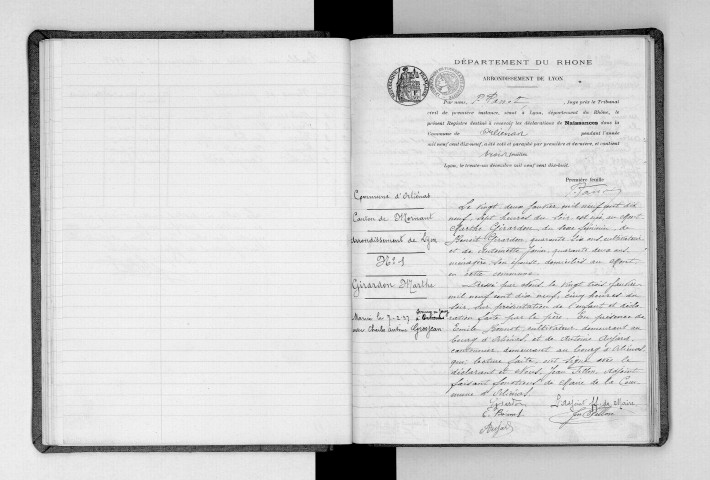 DÉPARTEMENT DU RHONE
ARRONDISSEMENT DE LYON
Par nous, Juge près le Tribunal
civil de première instance, séant à Lyon, département du Rhône, le
présent Registre destiné à recevoir les déclarations de Naissances dans la
Commune de Orliénas pendant l'année
mil neuf cent dix-neuf, a été coté et paraphé par première et dernière, et contient
feuilles
Lyon, le trente-un décembre mil neuf cent dix-huit.
Première feuille
Commune d'Orliénas
Canton de Mornant
Arrondissement de Lyon
N° 1
Girardon Marthe
Marié le 7-2-37
avec Charles Antoine Grosjean
Le vingt deux Janvier mil neuf cent dix
neuf, sept heures du soir est née, au
Marthe Girardon, du sexe féminin, de
Benoit Girardon, quarante six ans, cultivateur
et de Antoinette quarante deux ans,
ménagère, son épouse domiciliés au
en cette commune.
Dressé par Nous le vingt trois Janvier
mil neuf cent dix neuf, cinq heures du
soir, sur présentation de l'enfant et décla
ration faite par le père. En présence de
Emile cultivateur demeurant au
bourg d'Orliénas, et de Antoine
cantonnier demeurant au bourg d'Orliénas
qui, lecture faite, ont signé avec le
déclarant et Nous, Jean Fillon Adjoint
faisant fonctions de Maire de la Com
mune d'Orliénas.
Girardon
L'adjoint ff. de Maire
Jean Fillon